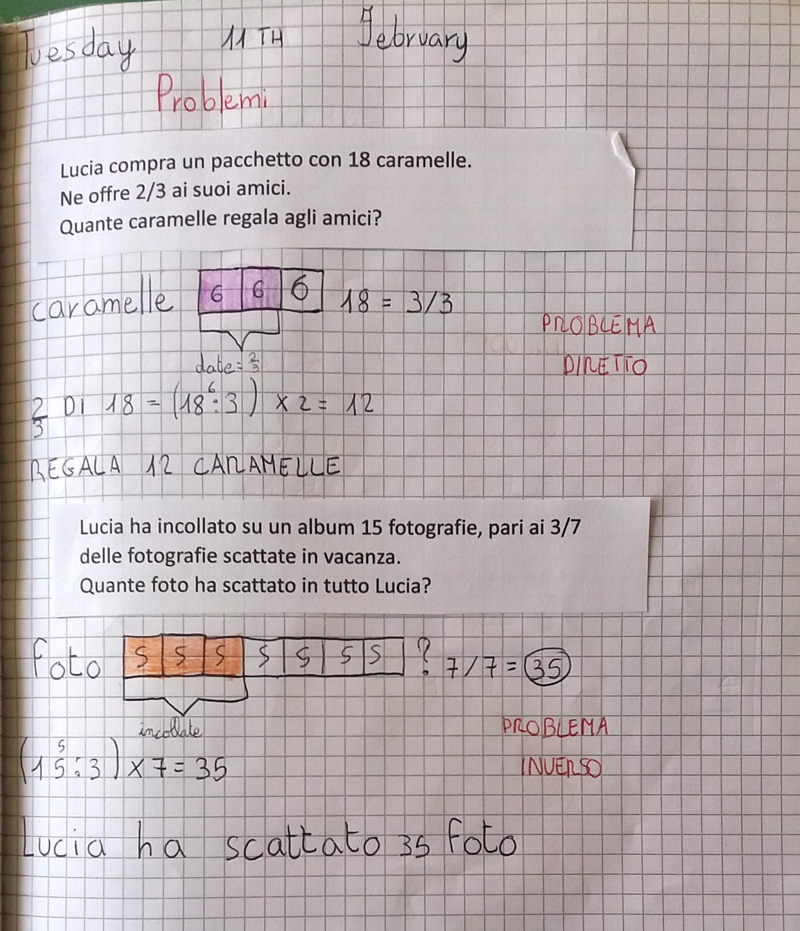 Tuesday 11TH February
Problemi
Lucia compra un pacchetto con 18 caramelle.
Ne offre 2/3 ai suoi amici.
Quante caramelle regala agli amici?
caramelle 6 6 6 18 = 3/3
PROBLEMA
DIRETTO
date = 2/3
2/3 DI 18 = (18 : 3) x 2 = 12
6
REGALA 12 CARAMELLE
Lucia ha incollato su un album 15 fotografie, pari ai 3/7
delle fotografie scattate in vacanza.
Quante foto ha scattato in tutto Lucia?
foto 5 5 5 5 5 5 5 ? 7/7 = 35
incollate
PROBLEMA
INVERSO
5
(15 : 3) x 7 = 35
Lucia ha scattato 35 foto